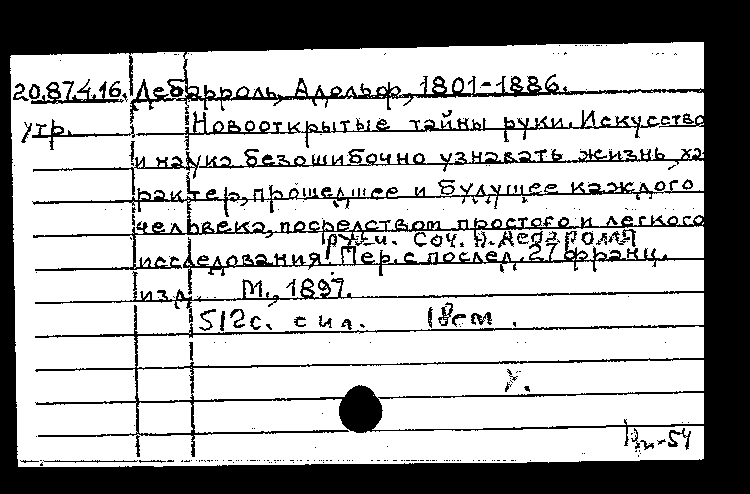 20.87.4.16. Дебарроль, Адольф, 1801-1886.
утр. Новооткрытые тайны руки. Искусство
и наука безошибочно узнавать жизнь, ха
рактер, прошедшее и будущее каждого
человека, посредством простого и легкого
руки. Соч. А. Дебарроля
исследования Пер. с послед. 27 франц.
изд. М., 1897.
512с. с ил. 18см.
У.